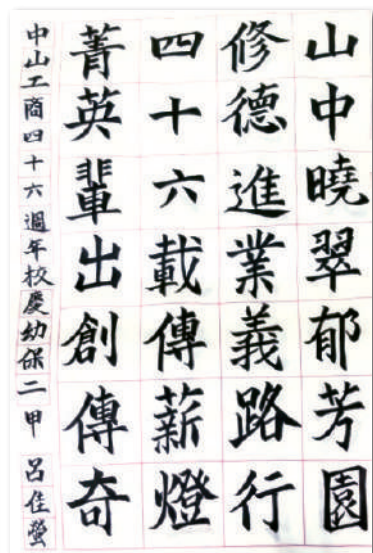 山中曉翠郁芳園
修德進業義路行
四十六載傳薪燈
菁英輩出創傳奇
中山工商四十六週年校慶幼保二甲 呂佳螢